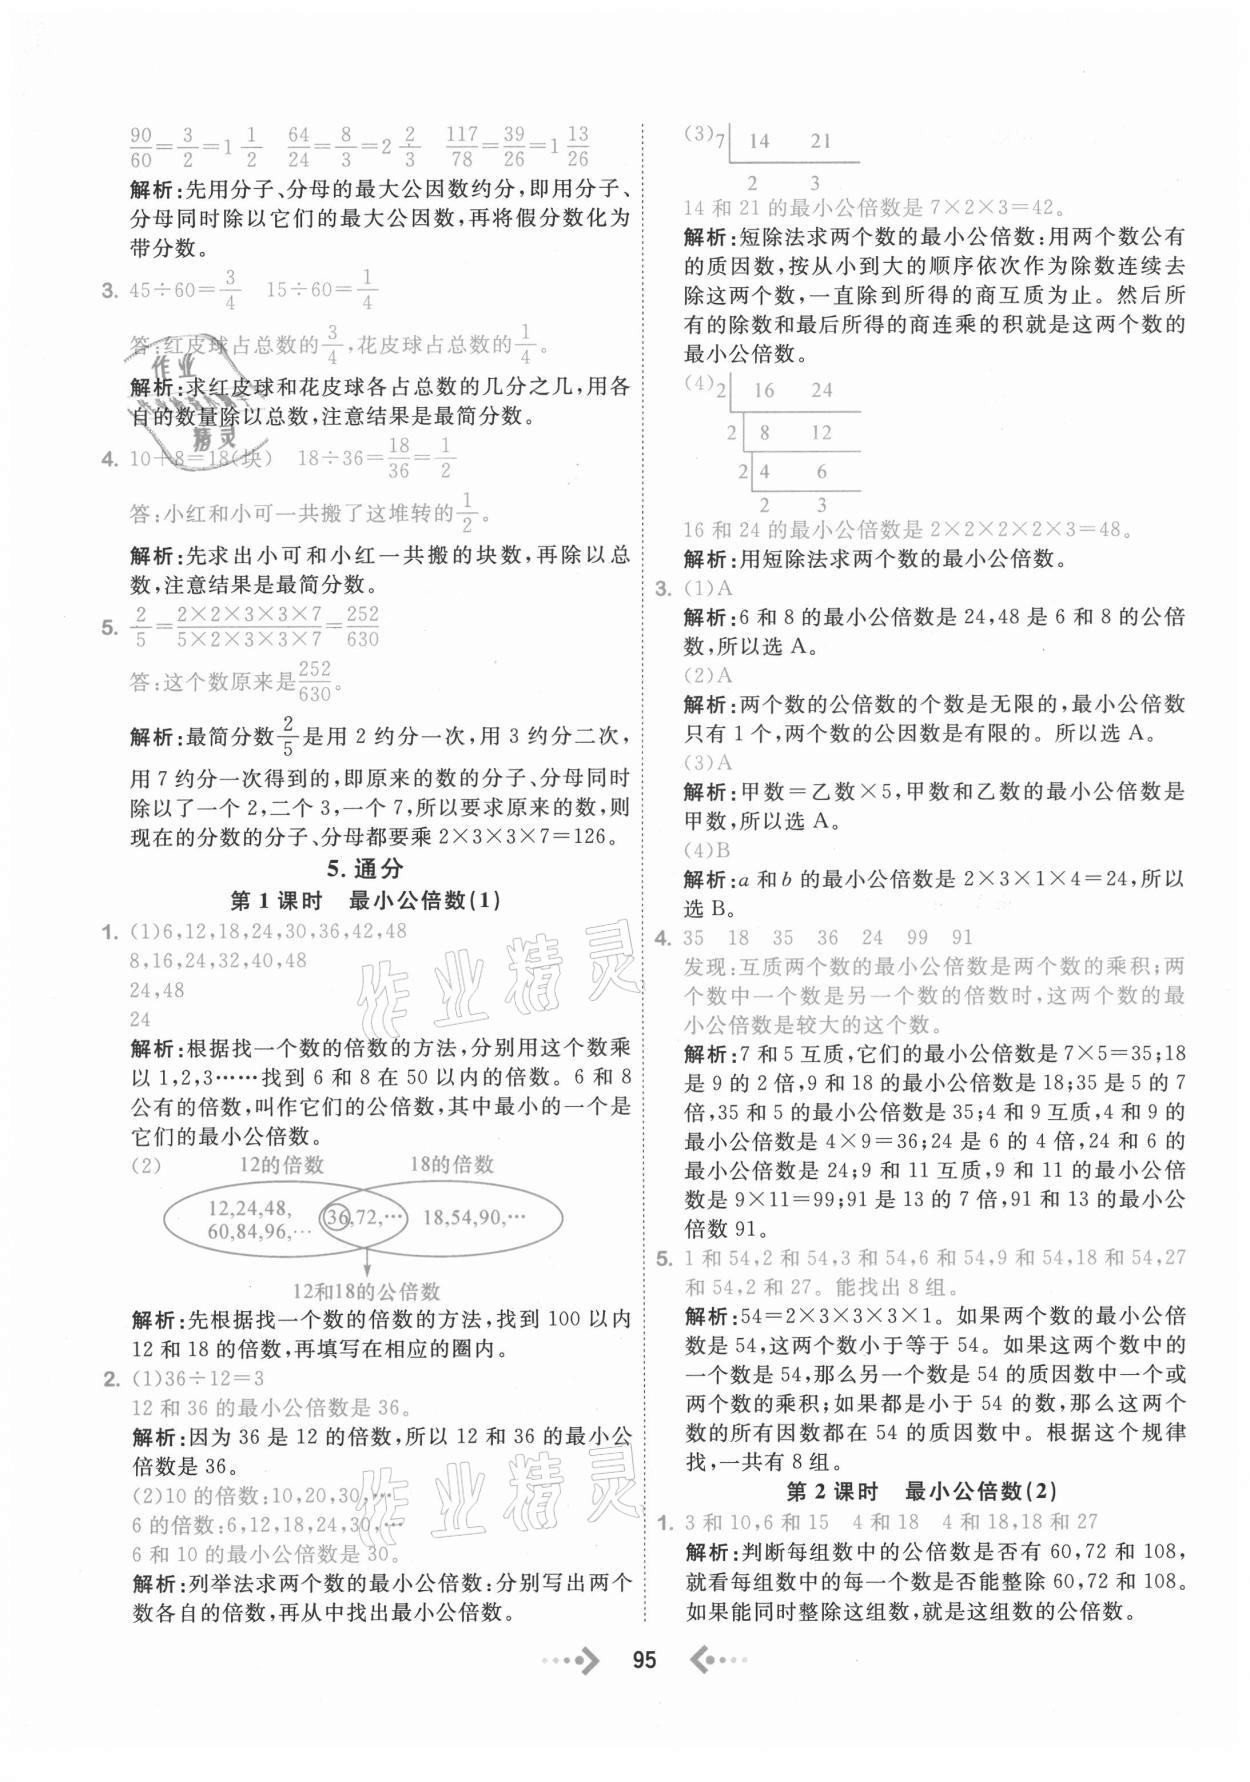 90/60=3/2=1 1/2  64/24=8/3=2 2/3  117/78=39/26=1 13/26
解析:先用分子、分母的最大公因数约分,即用分子、
分母同时除以它们的最大公因数,再将假分数化为
带分数。
3. 45÷60=3/4  15÷60=1/4
答:红皮球占总数的3/4,花皮球占总数的1/4。
解析:求红皮球和花皮球各占总数的几分之几,用各
自的数量除以总数,注意结果是最简分数。
4. 10+8=18(块)  18÷36=18/36=1/2
答:小红和小可一共搬了这堆转的1/2。
解析:先求出小可和小红一共搬的块数,再除以总
数,注意结果是最简分数。
5. 2/5=2×2×3×3×7/5×2×3×3×7=252/630
答:这个数原来是252/630。
解析:最简分数2/5是用 2 约分一次,用 3 约分二次,
用 7 约分一次得到的,即原来的数的分子、分母同时
除以了一个 2,二个 3,一个 7,所以要求原来的数,则
现在的分数的分子、分母都要乘 2×3×3×7=126。
5. 通分
第 1 课时  最小公倍数(1)
1. (1)6,12,18,24,30,36,42,48
8,16,24,32,40,48
24,48
24
解析:根据找一个数的倍数的方法,分别用这个数乘
以 1,2,3……找到 6 和 8 在 50 以内的倍数。6 和 8
公有的倍数,叫作它们的公倍数,其中最小的一个是
它们的最小公倍数。
(2)  12的倍数  18的倍数
12,24,48,
60,84,96,…  36,72,…  18,54,90,…
12和18的公倍数
解析:先根据找一个数的倍数的方法,找到 100 以内
12 和 18 的倍数,再填写在相应的圈内。
2. (1)36÷12=3
12 和 36 的最小公倍数是 36。
解析:因为 36 是 12 的倍数,所以 12 和 36 的最小公
倍数是 36。
(2)10 的倍数:10,20,30,…
6 的倍数:6,12,18,24,30,…
6 和 10 的最小公倍数是 30。
解析:列举法求两个数的最小公倍数:分别写出两个
数各自的倍数,再从中找出最小公倍数。
(3) 7 14 21
2 3
14 和 21 的最小公倍数是 7×2×3=42。
解析:短除法求两个数的最小公倍数:用两个数公有
的质因数,按从小到大的顺序依次作为除数连续去
除这两个数,一直除到所得的商互质为止。然后所
有的除数和最后所得的商连乘的积就是这两个数的
最小公倍数。
(4) 2 16 24
2 8 12
2 4 6
2 3
16 和 24 的最小公倍数是 2×2×2×2×3=48。
解析:用短除法求两个数的最小公倍数。
3. (1)A
解析:6 和 8 的最小公倍数是 24,48 是 6 和 8 的公倍
数,所以选 A。
(2)A
解析:两个数的公倍数的个数是无限的,最小公倍数
只有 1 个,两个数的公因数是有限的。所以选 A。
(3)A
解析:甲数=乙数×5,甲数和乙数的最小公倍数是
甲数,所以选 A。
(4)B
解析:a 和 b 的最小公倍数是 2×3×1×4=24,所以
选 B。
4. 35 18 35 36 24 99 91
发现:互质两个数的最小公倍数是两个数的乘积;两
个数中一个数是另一个数的倍数时,这两个数的最
小公倍数是较大的这个数。
解析:7 和 5 互质,它们的最小公倍数是 7×5=35;18
是 9 的 2 倍,9 和 18 的最小公倍数是 18;35 是 5 的 7
倍,35 和 5 的最小公倍数是 35;4 和 9 互质,4 和 9 的
最小公倍数是 4×9=36;24 是 6 的 4 倍,24 和 6 的
最小公倍数是 24;9 和 11 互质,9 和 11 的最小公倍
数是 9×11=99;91 是 13 的 7 倍,91 和 13 的最小公
倍数 91。
5. 1 和 54,2 和 54,3 和 54,6 和 54,9 和 54,18 和 54,27
和 54,2 和 27。能找出 8 组。
解析:54=2×3×3×3×1。如果两个数的最小公倍
数是 54,这两个数小于等于 54。如果这两个数中的
一个数是 54,那么另一个数是 54 的质因数中一个或
两个数的乘积;如果都是小于 54 的数,那么这两个
数的所有因数都在 54 的质因数中。根据这个规律
找,一共有 8 组。
第 2 课时  最小公倍数(2)
1. 3 和 10,6 和 15  4 和 18  4 和 18,18 和 27
解析:判断每组数中的公倍数是否有 60,72 和 108,
就看每组数中的每一个数是否能整除 60,72 和 108。
如果能同时整除这组数,就是这组数的公倍数。
95
作业
精灵
作业精灵
作业精灵